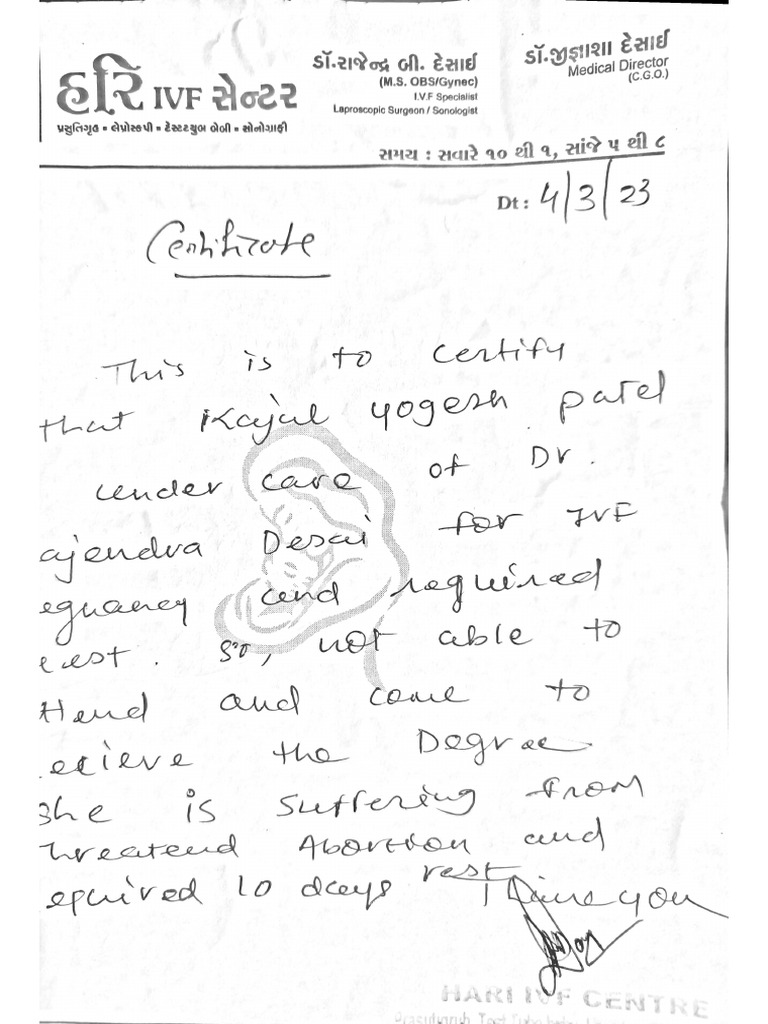 હરિ IVF સેન્ટર
પ્રસુતિગૃહ • લેપ્રોસ્કોપી • ટેસ્ટટ્યુબ બેબી • સોનોગ્રાફી
ડૉ.રાજેન્દ્ર બી. દેસાઈ
(M.S. OBS/Gynec)
I.V.F Specialist
Laproscopic Surgeon / Sonologist
ડૉ.જીજ્ઞાશા દેસાઈ
Medical Director
(C.G.O.)
સમય : સવારે ૧૦ થી ૧, સાંજે ૫ થી ૮
Dt : 4/3/23
Certificate
This is to certify
that Kajal yogesh patel
under care of Dr.
ajendra Desai for IVF
egnancy and required
rest. so, not able to
ttend and come to
recieve the Degree
she is suffering from
threatend Abortion and
equired 10 days rest
Thank you
HARI IVF CENTRE